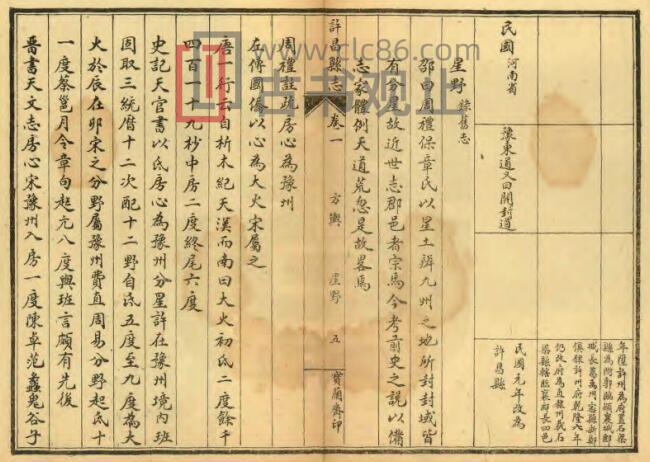 年陞許州為府置石梁
縣為附郭臨潁襄城郾
城長葛禹州密縣新鄭
俱隸許州府乾隆六年
仍改府為直隸州裁石
梁縣轄臨襄郾長四邑
民國元年改為
許昌縣
豫東道又曰開封道
民國 河南省
星野 錄舊志
邵曰周禮保章氏以星土辨九州之地所封封域皆
有分星故近世志郡邑者宗焉今考前史之說以備
志家體例天道荒忽是故畧焉
許昌縣志 卷一 方輿 星野 五 寶蘭齋印
周禮註疏房心為豫州
左傳國僑以心為大火宋屬之
唐一行云自析木紀天漢而南曰大火初氐二度餘千
四百一十九杪中房二度終尾六度
史記天官書以氐房心為豫州分星許在豫州境内班
固取三統曆十二次配十二野自氐五度至九度為大
火於辰在卯宋之分野屬豫州費直周易分野起氐十
一度蔡邕月令章句起亢八度與班言頗有先後
晋書天文志房心宋豫州入房一度陳卓范蠡鬼谷子
www.clc86.com